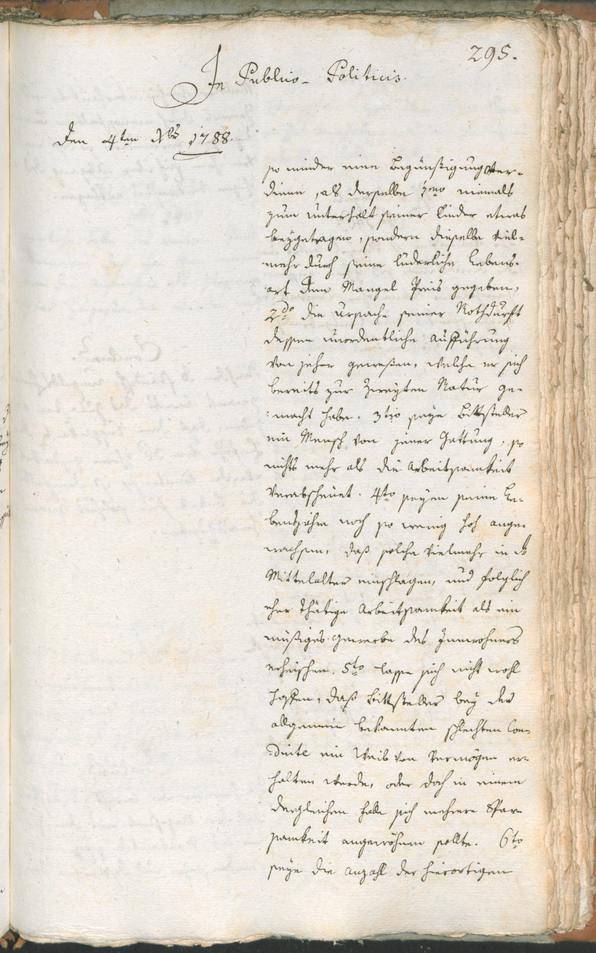 295.
In Publico-Politicis.
Den 4ten 9bris 1788.
so minder eine Begünstigung ver-
diene, als derselbe 1mo niemals
zum Unterhalt seiner Kinder etwas
beygetragen, sondern dieselbe viel-
mehr durch seine luderliche Lebens-
art dem Mangel Preis gegeben,
2do die Ursache seiner Nothdurft
dessen unordentliche Aufführung
von jeher gewesen, welche er sich
bereits zur zweyten Natur ge-
macht habe. 3tio seye Bittsteller
ein Mensch von jener Gattung, so
nichts mehr als die Arbeitsamkeit
verabscheuet. 4to seyen seine Le-
bensjahre noch so wenig hoch ange-
wachsen, daß solche vielmehr in das
Mittelalter einschlagen, und folglich
eher thätige Arbeitsamkeit als ein
müßiges Gewerbe des Innwohners
erheischen. 5to lasse sich nicht wohl
hoffen, daß Bittsteller bey der
allgemein bekannten schlechten Con-
duite ein Weib von Vermögen er-
halten werde, oder doch in einem
dergleichen Falle sich mehrere Spar-
samkeit angewöhnen sollte. 6to
seye die Anzahl der hierortigen